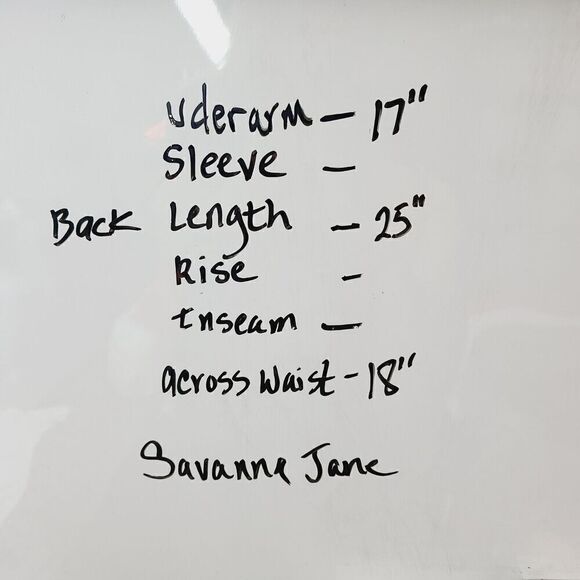 uderarm — 17"
Sleeve —
Back Length — 25"
Rise -
Inseam —
across Waist - 18"
Savanna Jane